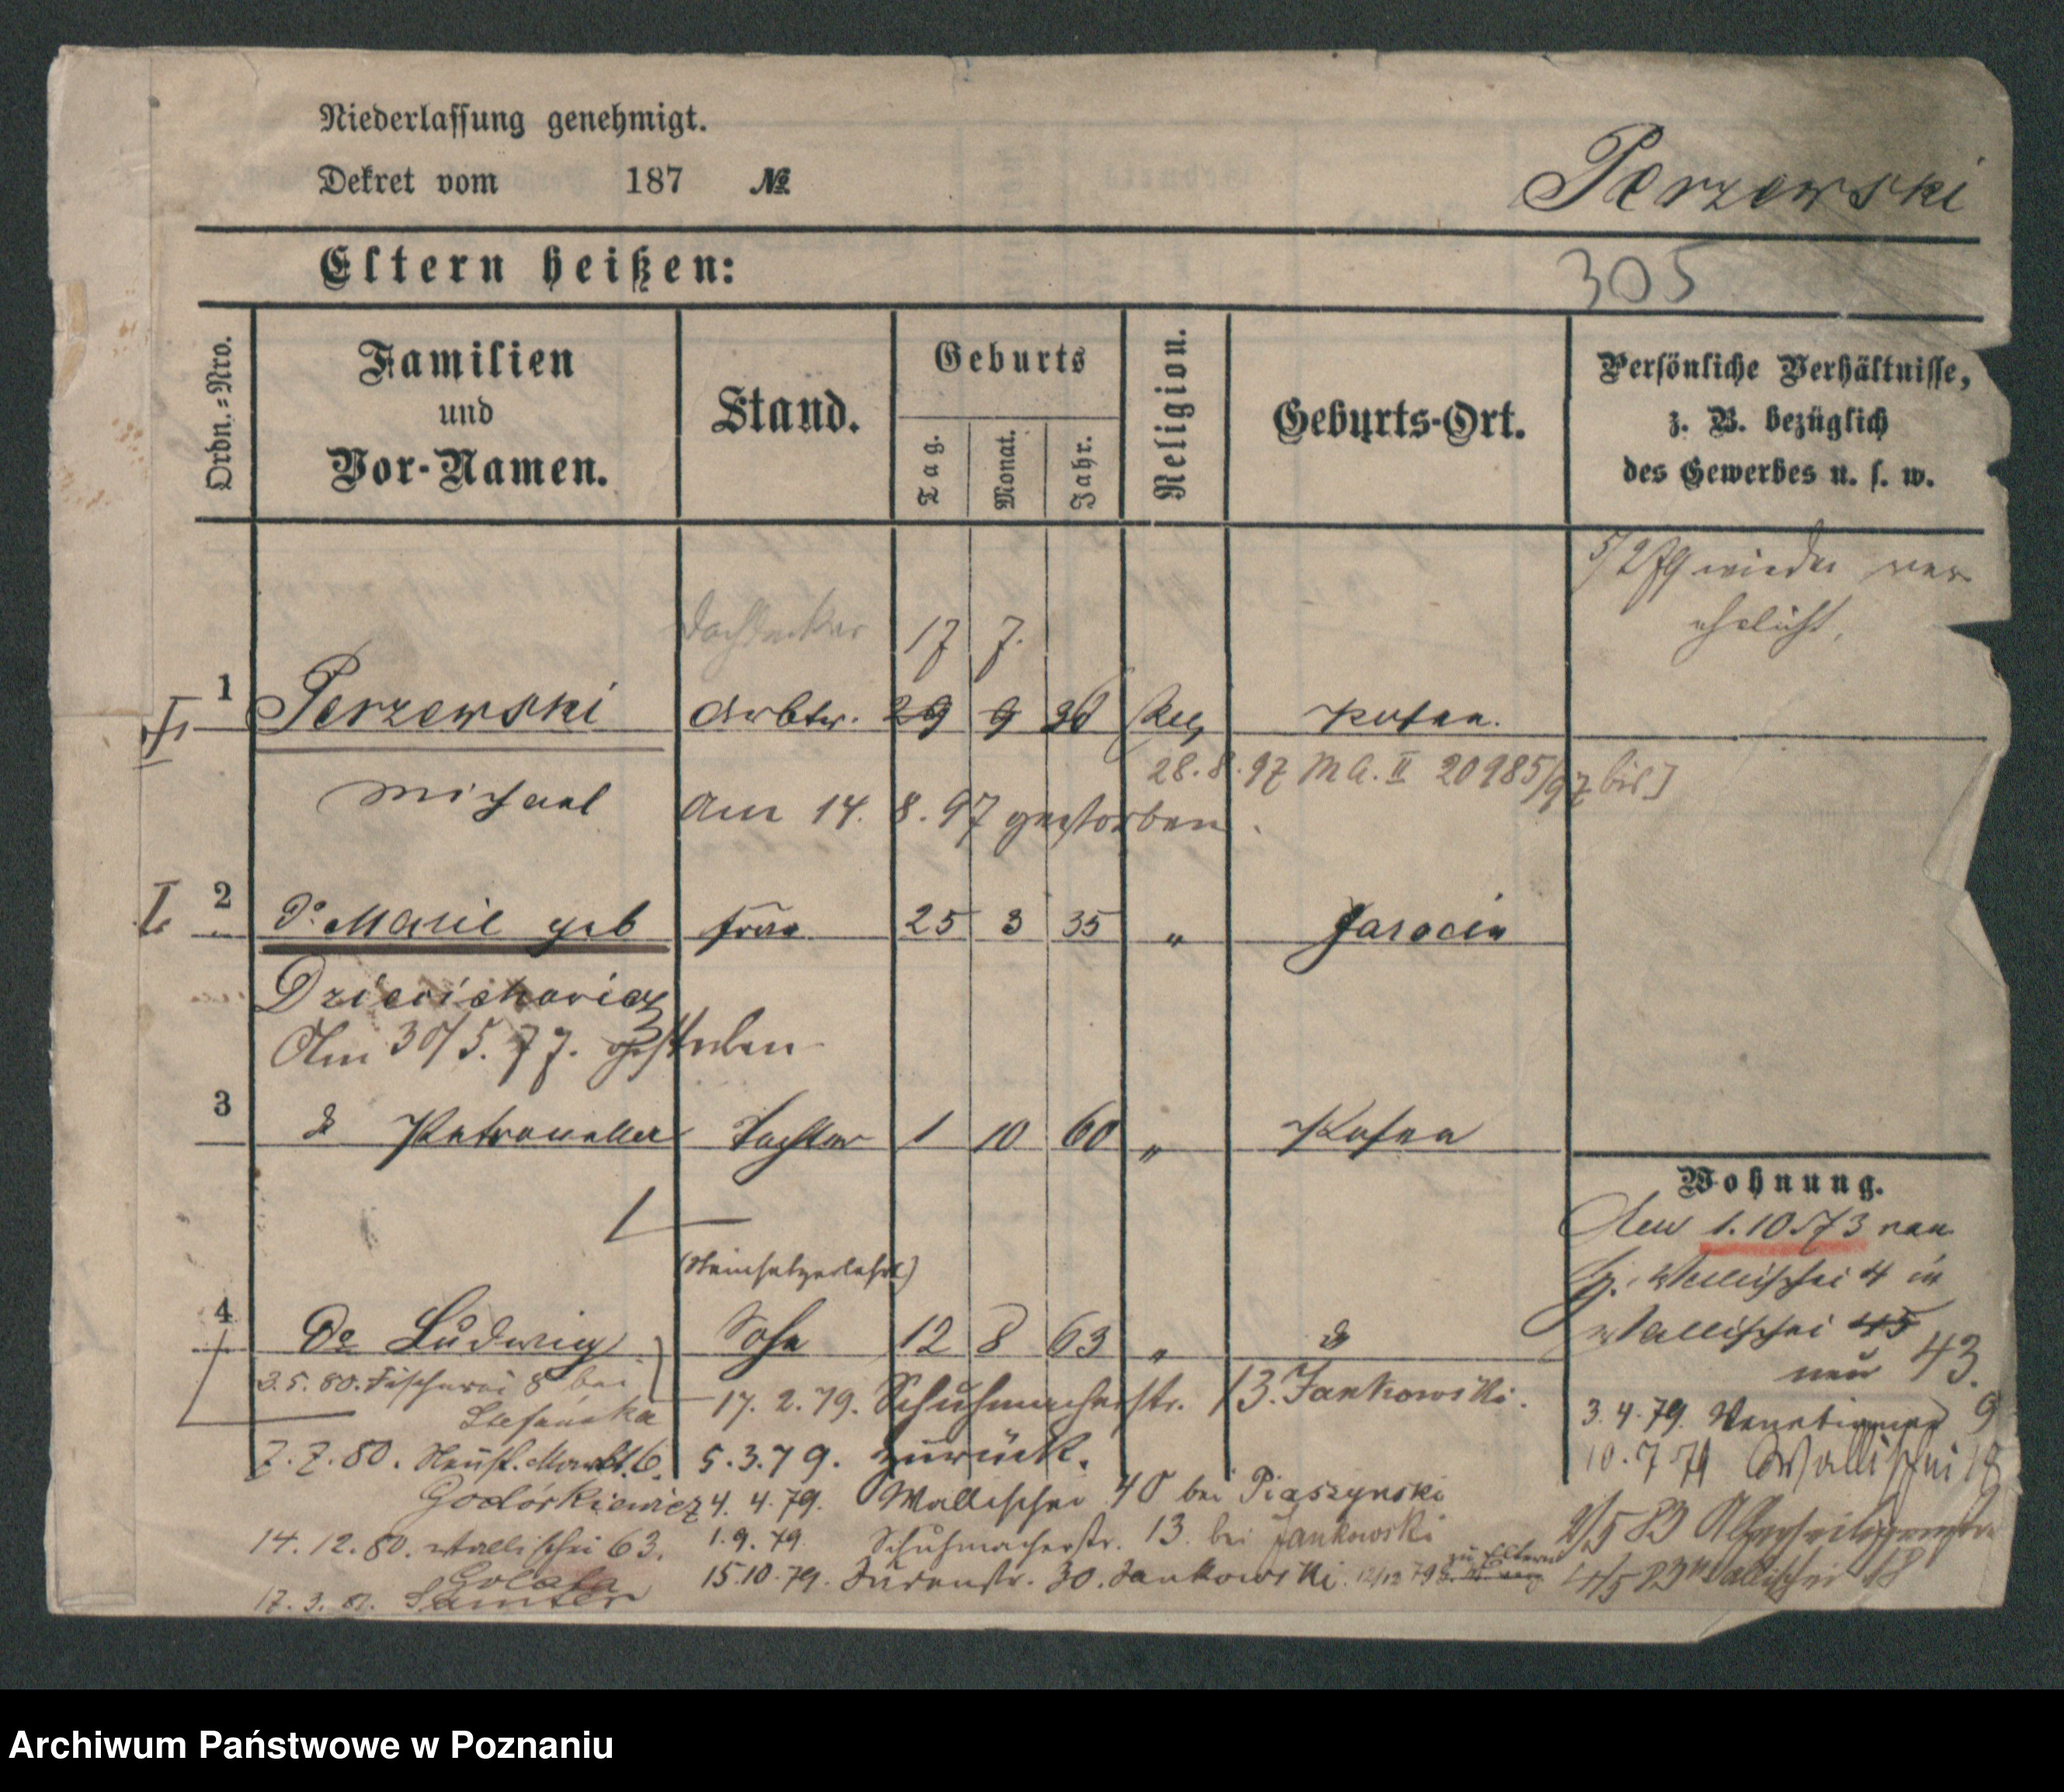 Niederlassung genehmigt.
Dekret vom 187 №
Perzewski
Eltern heißen:
305
Ordn.=Nro.
Familien
und
Vor-Namen.
Stand.
Geburts
Tag.
Monat.
Jahr.
Religion.
Geburts-Ort.
Persönliche Verhältnisse,
z. B. bezüglich
des Gewerbes u. s. w.
5/2 79 wieder ver
ehelicht.
Dachdecker 17 7.
1 Perzewski Arbtr. 29 9 36 Posen.
28.8.97 M A. II 20985/97
Michael Am 14. 8. 97 gestorben.
2 Do Marie geb Frau 25 3 35 " Jarocin
Am 30/5. 77. gestorben
3 do Petronella Tochter 1 10 60 " Posen
Wohnung.
1.10.73 von
Wallischei 4 in
Wallischei 45
neu 43.
4 Do Ludwig Sohn 12 8 63 " do
3.5.80. Fischerei 8 bei
Stefańska
17. 2. 79. Schuhmacherstr. 13. Jankowski.
3. 4. 79. 9
7. 7. 80. Neust. Markt. 6. 5. 3. 79. zurück.
10. 7 79 Wallischei 18
Godórkiewicz 4. 4. 79. Wallischei 40 bei Piaszynski
14. 12. 80. Wallischei 63. 1. 9. 79. Schuhmacherstr. 13. bei Jankowski
2/5 83 Allerheiligenstr
15.10.79. Judenstr. 30. Jankowski. 12/12 79 zu Eltern
4/5 83 Wallischei 18
17. 3. 81. Samter
Archiwum Państwowe w Poznaniu